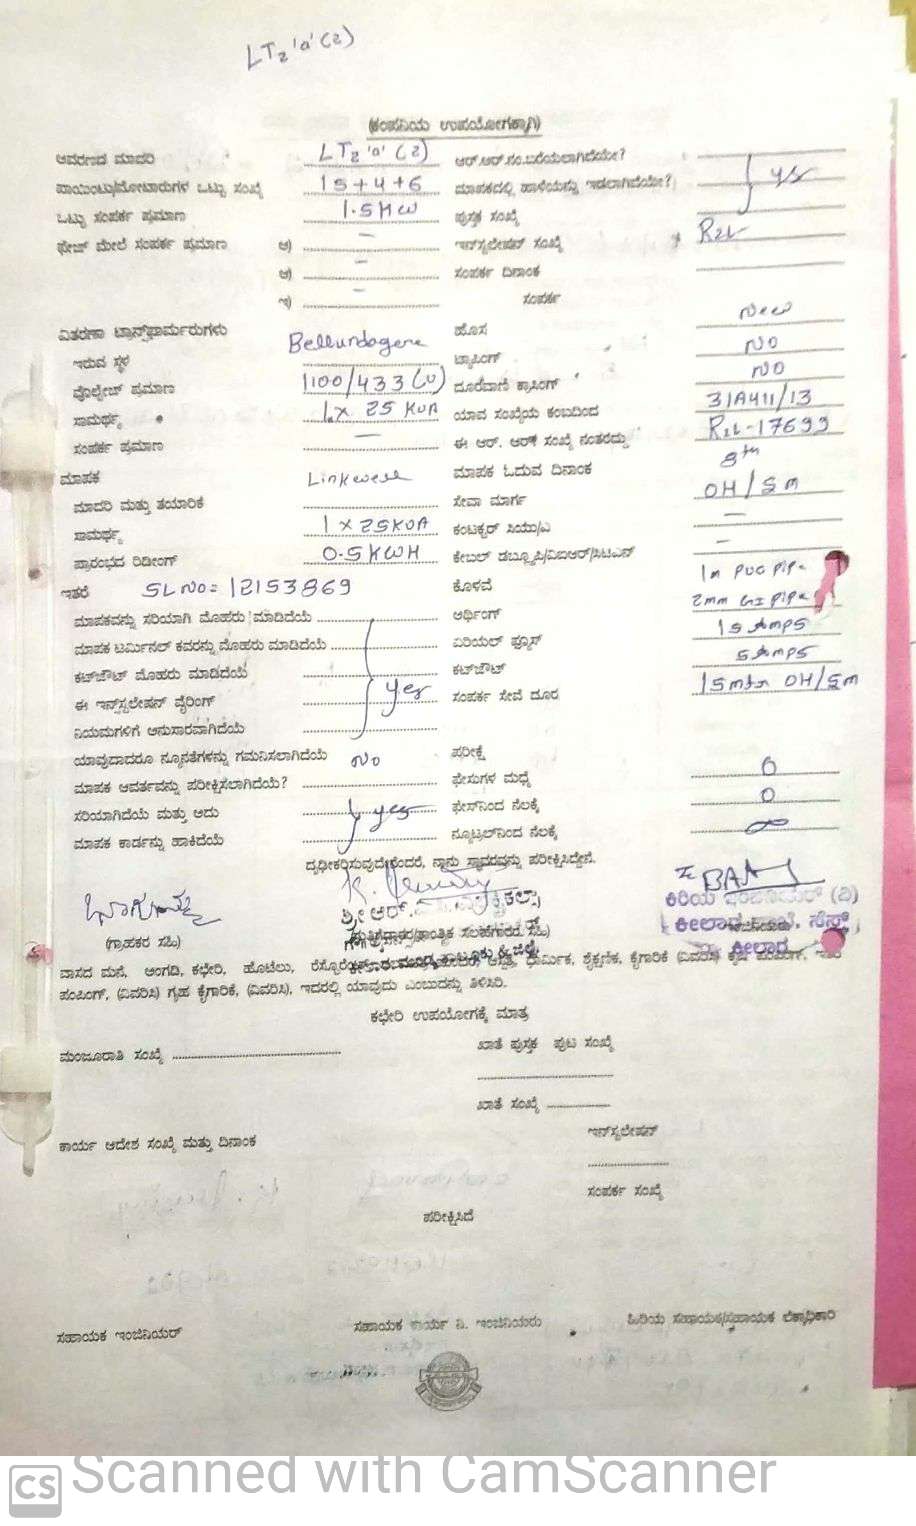 LT2 'a' (2)
(ಕಂಪನಿಯ ಉಪಯೋಗಕ್ಕಾಗಿ)
ಆವರಣದ ಮಾದರಿ LT2 'a' (2) ಆರ್.ಆರ್.ನಂ.ಬರೆಯಲಾಗಿದೆಯೇ?
ಪಾಯಿಂಟು/ಮೋಟಾರುಗಳ ಒಟ್ಟು ಸಂಖ್ಯೆ 15+4+6 ಮಾಪಕದಲ್ಲಿ ಹಾಳೆಯನ್ನು ಇಡಲಾಗಿದೆಯೇ? yes
ಒಟ್ಟು ಸಂಪರ್ಕ ಪ್ರಮಾಣ 1.5 KW ಪುಸ್ತಕ ಸಂಖ್ಯೆ
ಫೇಜ್ ಮೇಲೆ ಸಂಪರ್ಕ ಪ್ರಮಾಣ ಅ) – ಇನ್‌ಸ್ಟಲೇಷನ್ ಸಂಖ್ಯೆ R2L
ಆ) – ಸಂಪರ್ಕ ದಿನಾಂಕ
ಇ) – ಸಂಪರ್ಕ
ವಿತರಣಾ ಟ್ರಾನ್ಸ್‌ಫಾರ್ಮರುಗಳು ಹೊಸ New
ಇರುವ ಸ್ಥಳ ಟ್ಯಾಪಿಂಗ್ NO
ವೊಲ್ಟೇಜ್ ಪ್ರಮಾಣ 1100/433 (V) ದೂರವಾಣಿ ಕ್ರಾಸಿಂಗ್ NO
ಸಾಮರ್ಥ್ಯ 1 x 25 KVA ಯಾವ ಸಂಖ್ಯೆಯ ಕಂಬದಿಂದ 31A411/13
ಸಂಪರ್ಕ ಪ್ರಮಾಣ – ಈ ಆರ್. ಆರ್ ಸಂಖ್ಯೆ ನಂತರದ್ದು R2L-17699
ಮಾಪಕ Linkwell ಮಾಪಕ ಓದುವ ದಿನಾಂಕ 8th
ಮಾದರಿ ಮತ್ತು ತಯಾರಿಕೆ ಸೇವಾ ಮಾರ್ಗ OH / SM
ಸಾಮರ್ಥ್ಯ 1 x 25KVA ಕಂಟಕ್ಟರ್ ಸಿಯು/ಎ –
ಪ್ರಾರಂಭದ ರಿಡೀಂಗ್ 0.5 KWH ಕೇಬಲ್ ಡಬ್ಲ್ಯೂಪಿ/ವಿಐಆರ್/ಸಿಟಿಎಸ್ –
ಇತರೆ SL NO= 12153869 ಕೊಳವೆ 1m PVC Pipe
ಮಾಪಕವನ್ನು ಸರಿಯಾಗಿ ಮೊಹರು ಮಾಡಿದೆಯೆ ಅರ್ಥಿಂಗ್ 2mm GI Pipe
ಮಾಪಕ ಟರ್ಮಿನಲ್ ಕವರನ್ನು ಮೊಹರು ಮಾಡಿದೆಯೆ ಏರಿಯಲ್ ಫ್ಯೂಸ್ 15 Amps
ಕಟ್‌ಔಟ್ ಮೊಹರು ಮಾಡಿದೆಯೆ ಕಟ್‌ಔಟ್ 5 Amps
ಈ ಇನ್‌ಸ್ಟಲೇಷನ್ ವೈರಿಂಗ್ yes ಸಂಪರ್ಕ ಸೇವೆ ದೂರ 15mtr OH/SM
ನಿಯಮಗಳಿಗೆ ಅನುಸಾರವಾಗಿದೆಯೆ
ಯಾವುದಾದರೂ ನ್ಯೂನತೆಗಳನ್ನು ಗಮನಿಸಲಾಗಿದೆಯೆ No ಪರೀಕ್ಷೆ
ಮಾಪಕ ಆವರ್ತವನ್ನು ಪರೀಕ್ಷಿಸಲಾಗಿದೆಯೆ? ಫೇಸುಗಳ ಮಧ್ಯೆ 0
ಸರಿಯಾಗಿದೆಯೆ ಮತ್ತು ಅದು yes ಫೇಸ್‌ನಿಂದ ನೆಲಕ್ಕೆ 0
ಮಾಪಕ ಕಾರ್ಡನ್ನು ಹಾಕಿದೆಯೆ ನ್ಯೂಟ್ರಲ್‌ನಿಂದ ನೆಲಕ್ಕೆ ∞
ದೃಢೀಕರಿಸುವುದೇನೆಂದರೆ, ನಾನು ಸ್ಥಾವರವನ್ನು ಪರೀಕ್ಷಿಸಿದ್ದೇನೆ.
ಕಿರಿಯ ಇಂಜಿನಿಯರ್ (ವಿ)
(ಗ್ರಾಹಕರ ಸಹಿ)
ವಾಸದ ಮನೆ, ಅಂಗಡಿ, ಕಛೇರಿ, ಹೊಟೆಲು, ಧಾರ್ಮಿಕ, ಶೈಕ್ಷಣಿಕ, ಕೈಗಾರಿಕೆ (ವಿವರಿಸಿ)
ಪಂಪಿಂಗ್, (ವಿವರಿಸಿ) ಗೃಹ ಕೈಗಾರಿಕೆ, (ವಿವರಿಸಿ), ಇದರಲ್ಲಿ ಯಾವುದು ಎಂಬುದನ್ನು ತಿಳಿಸಿರಿ.
ಕಛೇರಿ ಉಪಯೋಗಕ್ಕೆ ಮಾತ್ರ
ಮಂಜೂರಾತಿ ಸಂಖ್ಯೆ ಖಾತೆ ಪುಸ್ತಕ ಪುಟ ಸಂಖ್ಯೆ
ಖಾತೆ ಸಂಖ್ಯೆ
ಕಾರ್ಯ ಆದೇಶ ಸಂಖ್ಯೆ ಮತ್ತು ದಿನಾಂಕ ಇನ್‌ಸ್ಟಲೇಷನ್
ಸಂಪರ್ಕ ಸಂಖ್ಯೆ
ಪರೀಕ್ಷಿಸಿದೆ
ಸಹಾಯಕ ಇಂಜಿನಿಯರ್ ಸಹಾಯಕ ಕಾರ್ಯ ನಿ. ಇಂಜಿನಿಯರು ಹಿರಿಯ ಸಹಾಯಕ/ಸಹಾಯಕ ಲೆಕ್ಕಾಧಿಕಾರಿ
CS Scanned with CamScanner